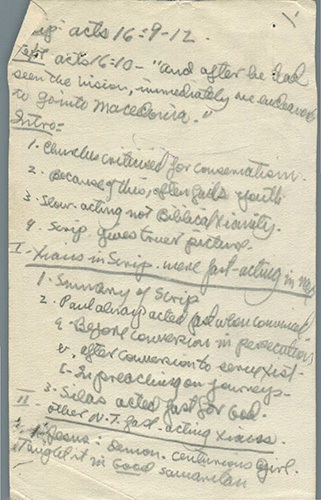 Acts 16:9-12.
Text Acts 16:10 - "and after he had
seen the vision, immediately we endeavor
to go into Macedonia."
Intro:
1. Churches criticised for conservatism.
2. Because of this, often fails youth
3. Slow-acting not Biblical Xianity.
4. Scrip. gives truer picture.
I - Xians in Scrip. were fast-acting in
1. Summary of Scrip
2. Paul always acted fast when convinced
a. Before conversion in persecution
b. After conversion to serve Xist
c. In preaching on journeys.
3. Silas acted fast for God
II - Other N.T. fast acting Xians.
1. Jesus: Demon. Centurions girl.
Taught it in Good Samaritan